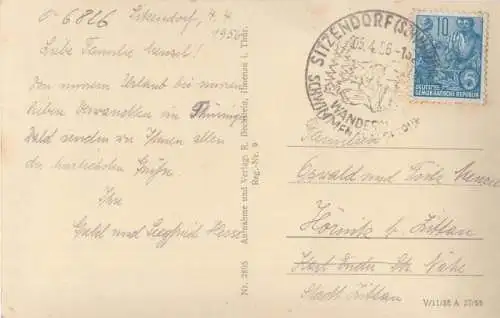 o-6826
Sitzendorf, 4.4.
1956
Liebe Familie Menzel!
Von unserem Urlaub bei unseren
lieben Verwandten im Thüringer
Wald senden wir Ihnen allen
die herzlichsten Grüße.
Ihre
und Siegfried Hesse
Nr. 2805 Aufnahme und Verlag: R. Bechstein, Ilmenau i. Thür.
Reg.-Nr. 9
SITZENDORF (SCHWARZATAL)
05.4.56-15
WANDERN
SCHWIMMEN
10
DEUTSCHE
DEMOKRATISCHE REPUBLIK
Familien
Oswald und Fritz Menzel
Hörnitz b. Zittau
Nähe
Stadt Zittau
V/11/28 A 27/55